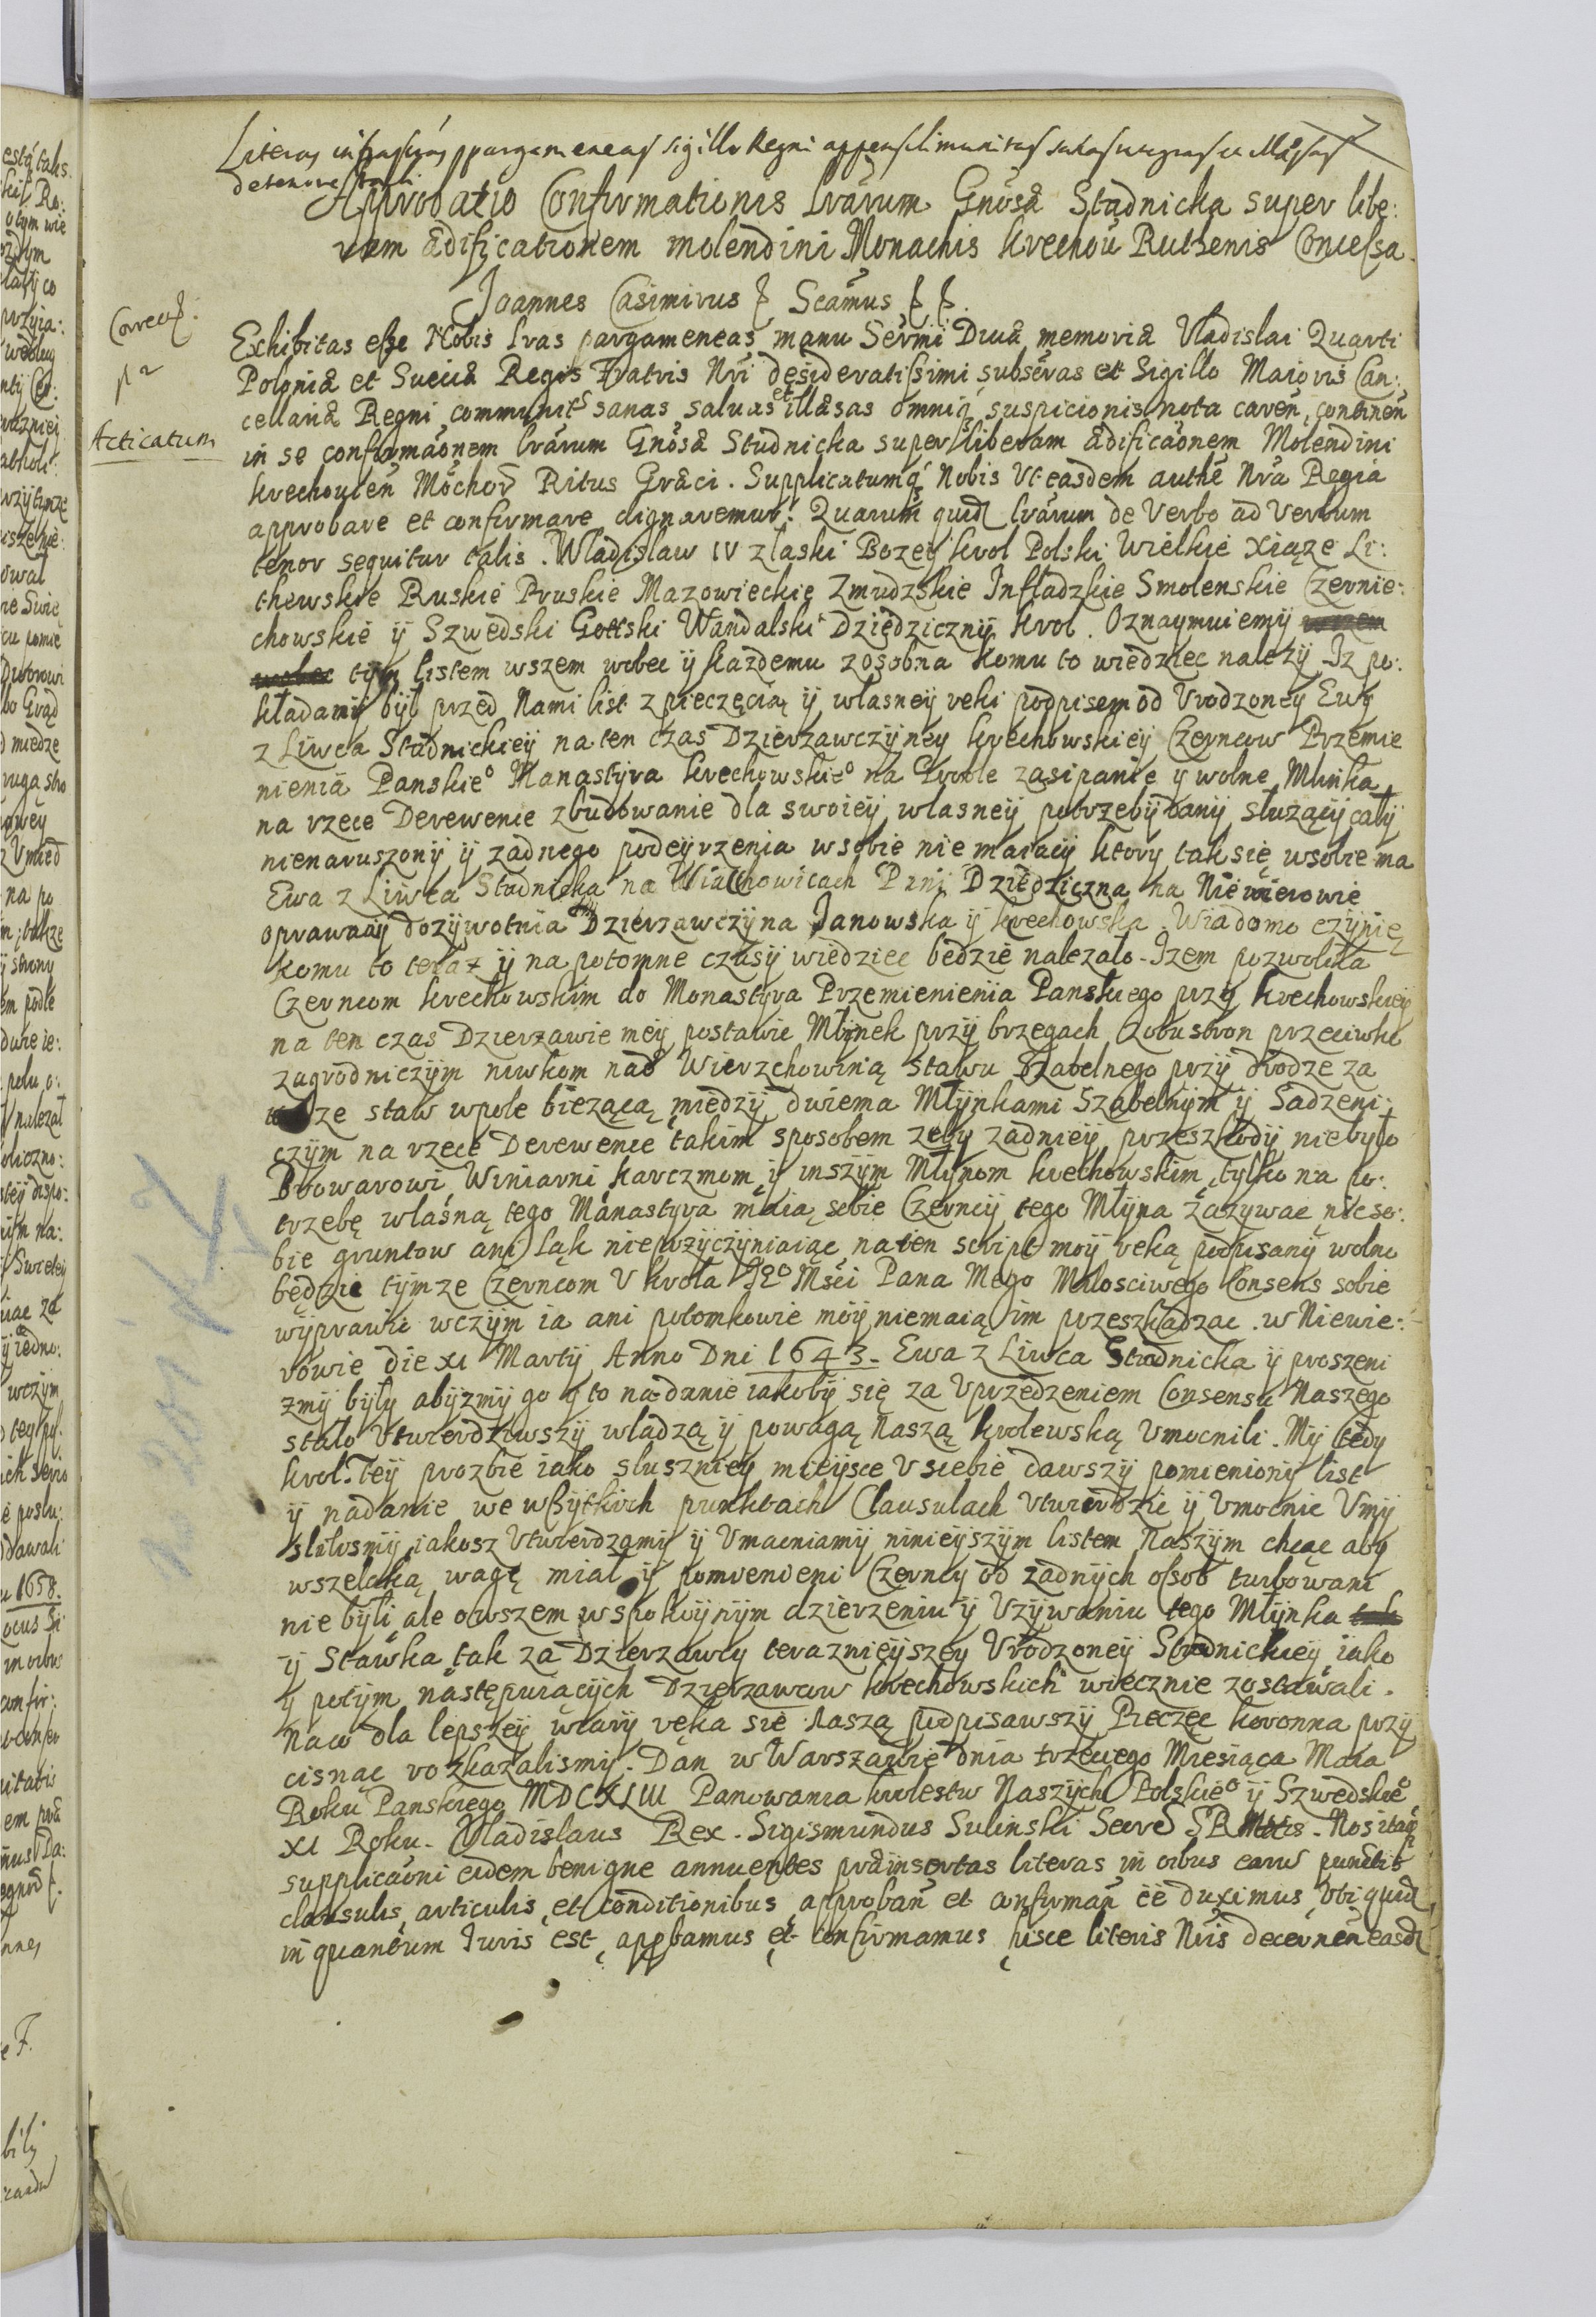 Literas infrascrptas pargameneas sigillo Regni appensili munitas saluas integras et illæsas
de tenore tali
Approbatio Confirmationis lrarum Gnosæ Stadnicka super libe:
ram ædificationem molendini Monachis Krechou Ruthenis Concessa.
Joannes Casimirus Scamus
Correct:
Exhibitas esse Nobis lras pargameneas manu Sermi Divæ memoriæ Vladislai Quarti
Poloniæ et Sueciæ Regis Fratris Nri desideratissimi subscras et Sigillo Maioris Can:
cellariæ Regni communit sanas saluas et illæsas omniq suspicionis nota caren, continen
Acticatum
in se confirmaonem lrarum Gnosæ Stadnicka super liberam ædificaonem Molendini
Krechouien Mochor Ritus Græci. Supplicatumq Nobis Vt easdem authe Nra Regia
approbare et confirmare dignaremur. Quarum quid lrarum de Verbo ad Verbum
tenor sequitur talis. Wladislaw IV z laski Bozey Krol Polski Wielkie Xiąze Li:
thewskie Ruskie Pruskie Mazowieckie Zmudzskie Infladzkie Smolenskie Czernie:
chowskie ÿ Szwedski Gottski Wandalski Dziedzicznÿ Krol. Oznaymuiemÿ wszem
wobec tÿm listem wszem wobec ÿ kazdemu zosobna komu to wiedziec nalezÿ Iz po:
kładanÿ bÿł przed Nami list z pieczęcią ÿ własneÿ reki podpisem od Vrodzoney Ewy
z Liwca Stadnickieÿ na ten czas Dzierzawczÿney Krechowskieÿ Czerncow Przemie
nienia Panskieo Manastÿra Krechowskieo na Groble zasipanie y wolne Mlinka
na rzece Derewence zbudowanie dla swoieÿ własneÿ potrzebÿ danÿ słuząçÿ całÿ
nienaruszonÿ ÿ zadnego podeÿrzenia wsobie nie maiacÿ ktorÿ tak się wsobie ma
Ewa z Liwca Stadnicka na Wiachowicach Pani Dziedziczna na Niemierowie
oprawnaÿ dozÿwotnia Dzierzawczÿna Janowska ÿ Krechowska. Wiadomo czÿnię
komu to teraz ÿ na potomne czasÿ wiedziec bedzie nalezało. Izem pozwoliła
Czerncom Krechowskim do Monastÿra Przemienienia Panskiego przÿ Krechowskieÿ
na ten czas Dzierzawie meÿ postawic Młÿnek przÿ brzegach zobu stron przeciwko
zagrodniczÿm niwkom nad Wierzchowiną stawu Szabelnego przÿ drodze za
staw wpole biezącą międzÿ dwiema Młÿnkami Szabelnÿm ÿ Sadzeni:
czÿm na rzece Derewence takim sposobem zebÿ zadnieÿ przeszkodÿ niebyło
Browarowi, Winiarni, karczmom ÿ inszÿm Młÿnom Krechowskim, tÿlko na po:
trzebę własną tego Manastÿra maią sobie Czerncÿ tego Młÿna zazÿwac nic so:
bie gruntow ani łąk nieprzÿczÿniaiąc na ten script moÿ reką podpisanÿ wolno
będzie tÿmze Czerncom V Krola Jeo Msci Pana Mego Milosciwego Consens sobie
wÿprawic wczÿm ia ani potomkowie moÿ niemaią im przeszkadzac. w Niewie:
rowie die XI Martÿ Anno Dni 1643. Ewa z Liwca Stadnicka ÿ proszeni
zmÿ bÿlÿ abÿzmÿ go ÿ to nadanie iakobÿ się za Vprzedzeniem Consensu Naszego
stało Vtwierdziwszÿ władzą ÿ powagą Naszą Krolewską Vmocnili. Mÿ tedÿ
Krol. Teÿ prozbie iako sluszneÿ mieÿsce V siebie dawszÿ pomienionÿ list
ÿ nadanie we wszÿtkich punktach Clausulach Vtwierdzic ÿ Vmocnic Vmÿ
slilismÿ iakosz Vtwierdzamÿ ÿ Vmacniamÿ ninieÿszÿm listem Naszÿm chcąc abÿ
wszelaką wagę miał ÿ pomienieni Czerncÿ od zadnÿch osob turbowani
nie bÿli ale owszem wspokoÿnÿm dzierzeniu ÿ Vzÿwaniu tego Młÿnka
ÿ Stawka tak za Dzierzawcÿ teraznieÿszeÿ Vrodzoneÿ Stadnickieÿ iako
ÿ potÿm nastepuiacÿch Dzierzawcow Krechowskich wiecznie zostawali.
Naco dla lepszeÿ wiarÿ ręka sie Naszą podpisawszÿ Pieczęc koronna przÿ
cisnąc rozkazalismÿ. Dan w Warszawie dnia trzeciego Miesiąca Maia
Roku Panskiego MDCXLIII Panowania krolestw Naszÿch Polskieo ÿ Szwedskieo
XI Roku. Vladislaus Rex. Sigismundus Sulinski Secre S R Mtis. Nos itaq
supplicaoni eidem benigne annuentes præinsertas literas in oibus earu punctis
clausulis, articulis, et conditionibus approban et confirman ee duximus, vti quid
in quantum Iuris est, appbamus et confirmamus hisce literis Nris decernen easd